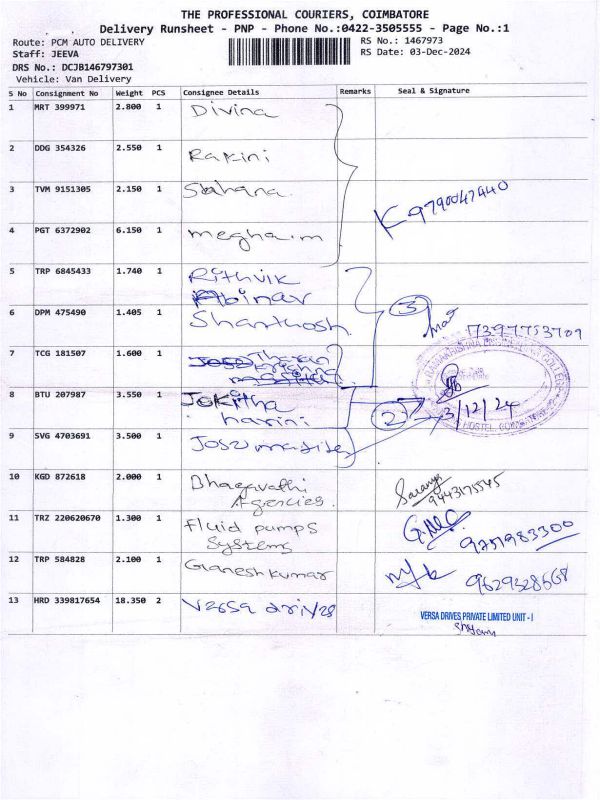 THE PROFESSIONAL COURIERS, COIMBATORE
Delivery Runsheet - PNP - Phone No.:0422-3505555 - Page No.:1
Route: PCM AUTO DELIVERY
RS No.: 1467973
Staff: JEEVA
RS Date: 03-Dec-2024
DRS No.: DCJB146797301
Vehicle: Van Delivery
S No Consignment No Weight PCS Consignee Details Remarks Seal & Signature
1 MRT 399971 2.800 1 Divina
2 DDG 354326 2.550 1 Rakini
3 TVM 9151305 2.150 1 Sahana
K 9790047440
4 PGT 6372902 6.150 1 megha.m
5 TRP 6845433 1.740 1 Rithvik
Abinav
6 DPM 475490 1.405 1 Shanthosh
3
7397753709
7 TCG 181507 1.600 1
8 BTU 207987 3.550 1 Jokitha
harini
2
3/12/24
HOSTEL, COIMBATORE
9 SVG 4703691 3.500 1
10 KGD 872618 2.000 1 Bhagavathi
Agencies.
Saranya
9443175545
11 TRZ 220620670 1.300 1 Fluid pumps
Systems
9751983300
12 TRP 584828 2.100 1 Ganesh kumar
9629328568
13 HRD 339817654 18.350 2
VERSA DRIVES PRIVATE LIMITED UNIT - I